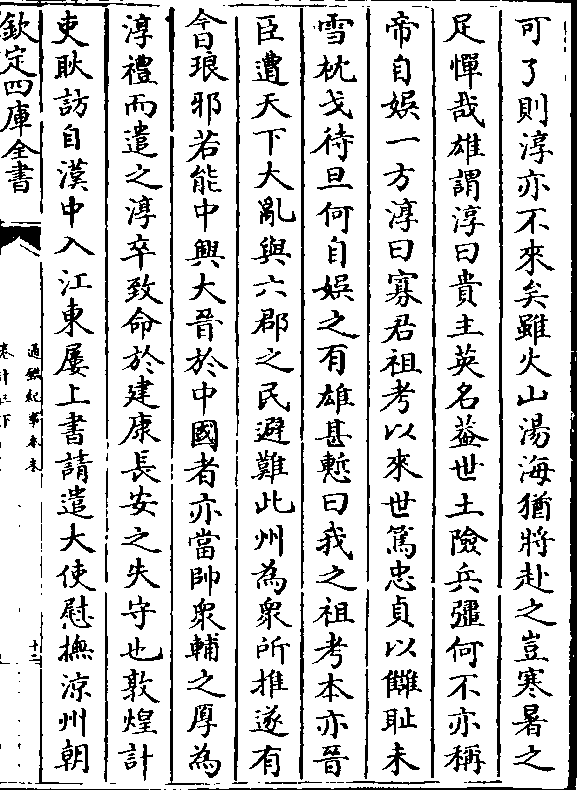 可了則淳亦不來矣雖火山湯海猶將赴之豈寒暑之
足憚哉雄謂淳曰貴主英名葢世土險兵彊何不亦稱
帝自娛一方淳曰寡君祖考以來世篤忠貞以讎恥未
雪枕戈待旦何自娛之有雄甚慙曰我之祖考本亦晉
臣遭天下大亂與六郡之民避難此州為衆所推遂有
今日琅邪若能中興大晉於中國者亦當帥衆輔之厚為
淳禮而遣之淳卒致命於建康長安之失守也敦煌計
吏耿訪自漢中入江東屢上書請遣大使慰撫涼州朝
欽定四庫全書
通鑑紀事本末
十二